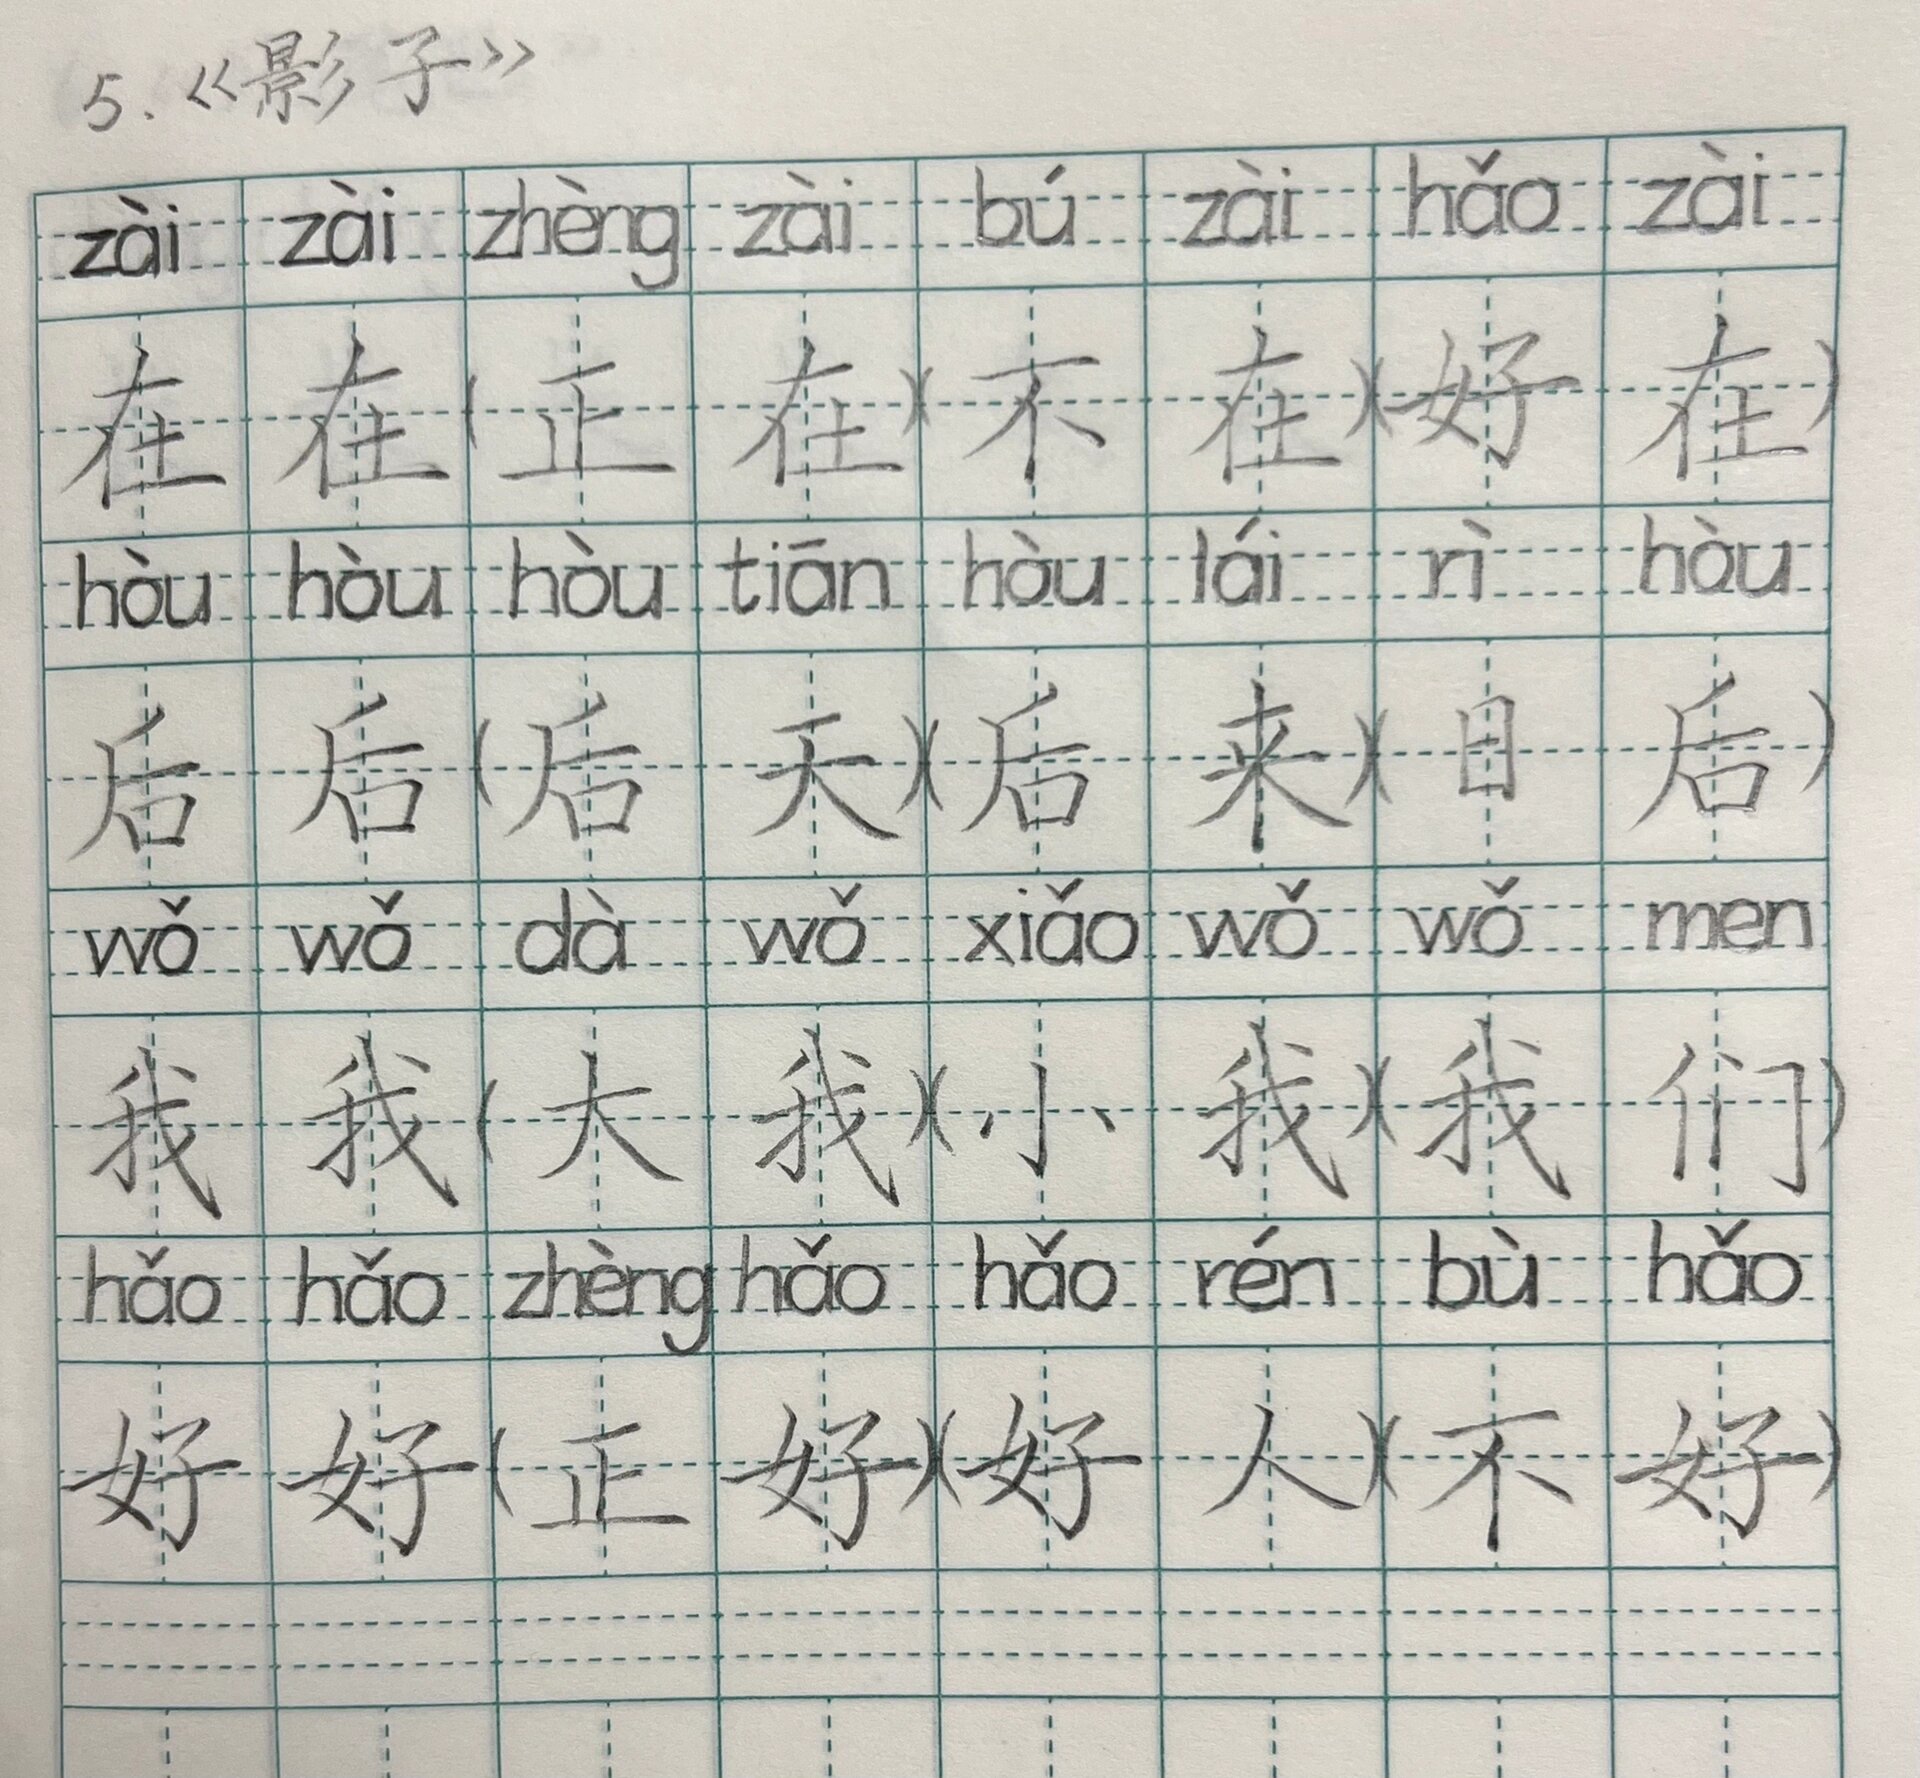 5.《影子》
zài zài zhèng zài bú zài hǎo zài
在 在 (正 在)(不 在)(好 在)
hòu hòu hòu tiān hòu lái rì hòu
后 后 (后 天)(后 来)(日 后)
wǒ wǒ dà wǒ xiǎo wǒ wǒ men
我 我 (大 我)(小 我)(我 们)
hǎo hǎo zhèng hǎo hǎo rén bù hǎo
好 好 (正 好)(好 人)(不 好)